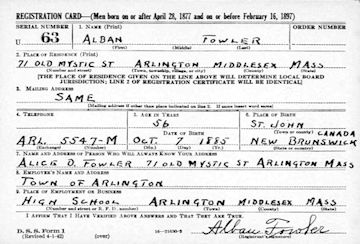 REGISTRATION CARD—(Men born on or after April 28, 1877 and on or before February 16, 1897)
SERIAL NUMBER 1. NAME (Print) ORDER NUMBER
U 63 ALBAN FOWLER
(First) (Middle) (Last)
2. PLACE OF RESIDENCE (Print)
71 OLD MYSTIC ST ARLINGTON MIDDLESEX MASS
(Number and street) (Town, township, village, or city) (County) (State)
[THE PLACE OF RESIDENCE GIVEN ON THE LINE ABOVE WILL DETERMINE LOCAL BOARD
JURISDICTION; LINE 2 OF REGISTRATION CERTIFICATE WILL BE IDENTICAL]
3. MAILING ADDRESS
SAME
[Mailing address if other than place indicated on line 2. If same insert word same]
4. TELEPHONE 5. AGE IN YEARS 6. PLACE OF BIRTH
56 ST. JOHN
DATE OF BIRTH (Town or county) CANADA
ARL 5547-M OCT. 1885 NEW BRUNSWICK
(Exchange) (Number) (Mo.) (Day) (Yr.) (State or country)
7. NAME AND ADDRESS OF PERSON WHO WILL ALWAYS KNOW YOUR ADDRESS
ALICE D. FOWLER 71 OLD MYSTIC ST ARLINGTON MASS
8. EMPLOYER'S NAME AND ADDRESS
TOWN OF ARLINGTON
9. PLACE OF EMPLOYMENT OR BUSINESS
HIGH SCHOOL ARLINGTON MIDDLESEX MASS
(Number and street or R. F. D. number) (Town) (County) (State)
I AFFIRM THAT I HAVE VERIFIED ABOVE ANSWERS AND THAT THEY ARE TRUE.
D. S. S. Form 1
(Revised 4-1-42) (over) Alban Fowler
(Registrant's signature)